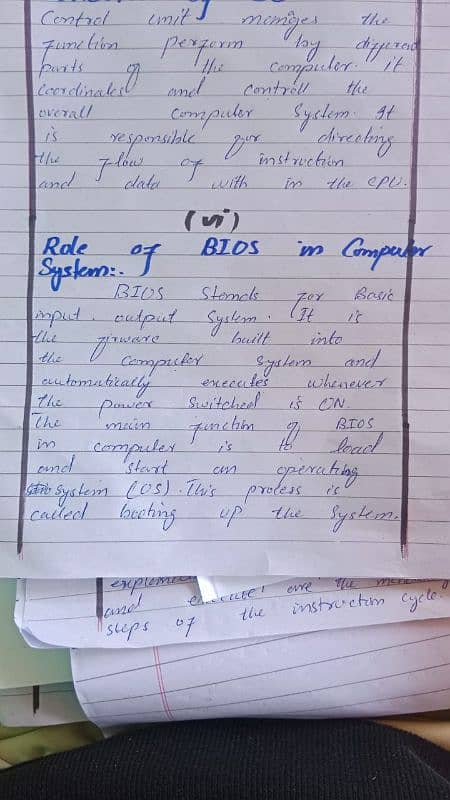 Control unit manages the
function perform by different
parts of the computer. It
Coordinates and controll the
overall Computer System. It
is responsible for directing
the flow of instruction
and data with in the CPU.
(vi)
Role of BIOS in Computer
System:-
BIOS Stands for Basic
input output System. It is
the firware built into
the Computer System and
automatically executes whenever
the power Switched is ON.
The main function of BIOS
in computer is to load
and start an operating
System (OS). This process is
called booting up the System.
and are the
steps of the instruction cycle.